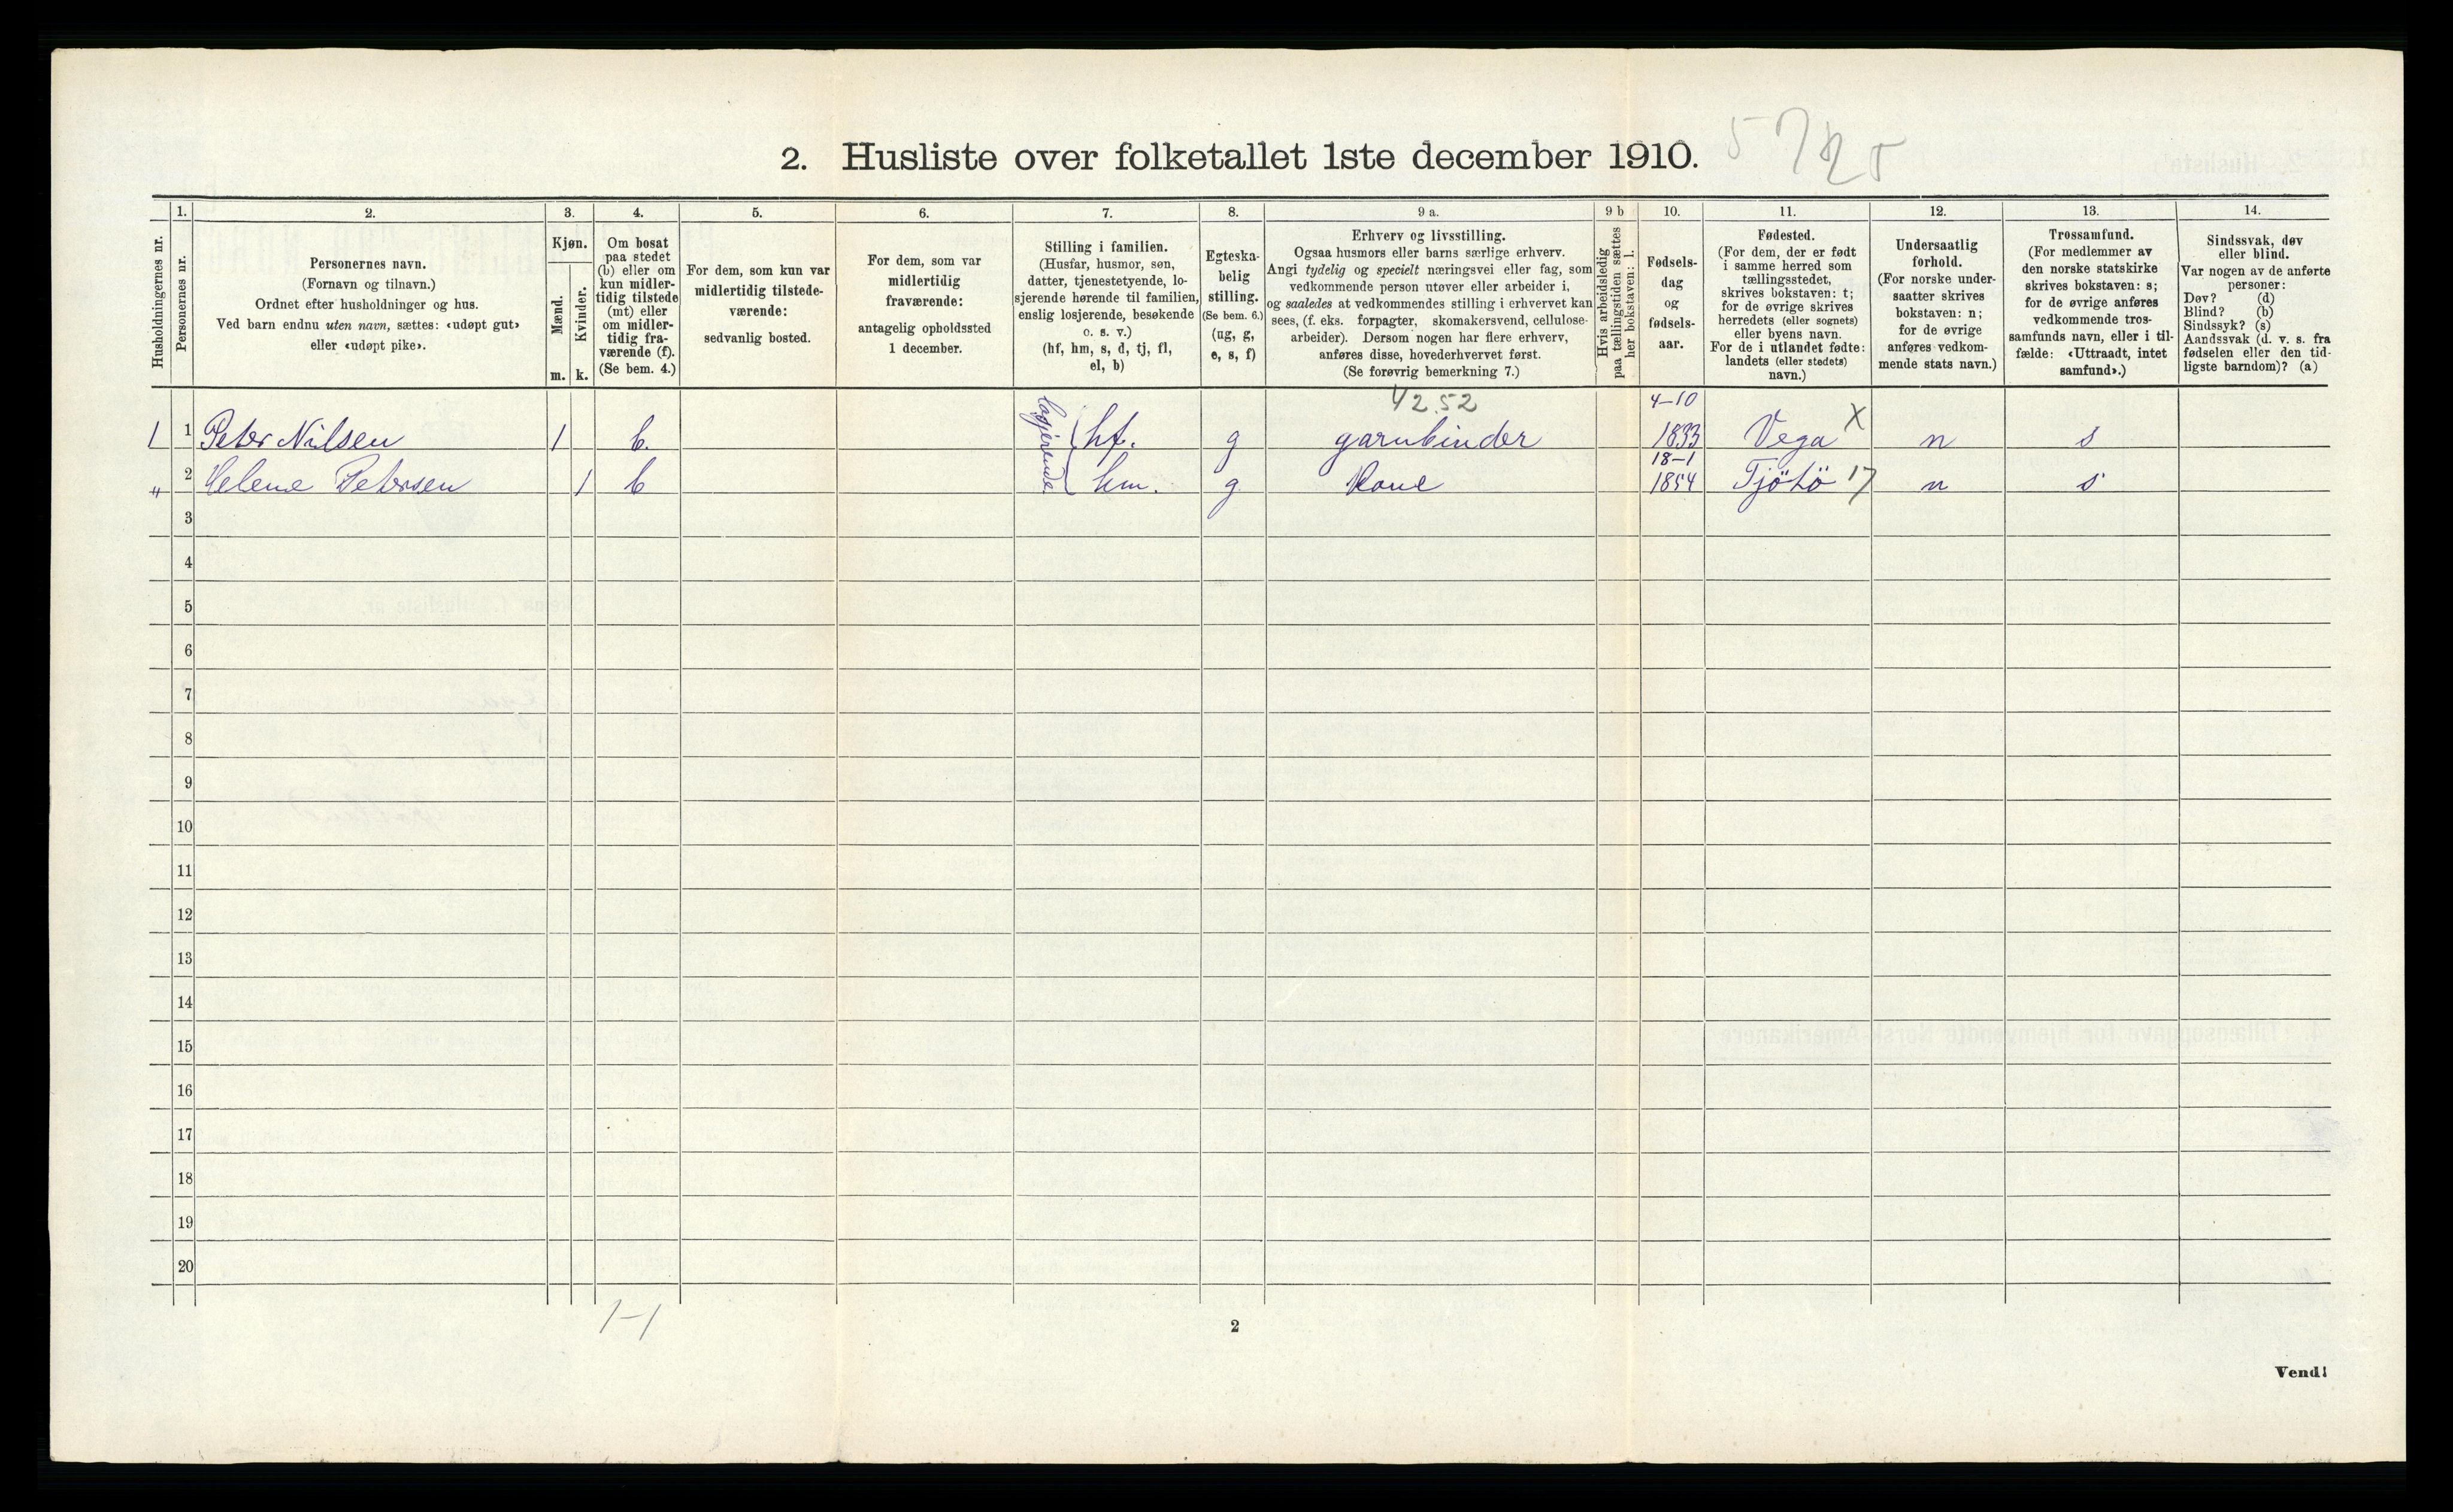 2. Husliste over folketallet 1ste december 1910.
Husholdningernes nr.
1.
Personernes nr.
2.
Personernes navn.
(Fornavn og tilnavn.)
Ordnet efter husholdninger og hus.
Ved barn endnu uten navn, sættes: «udøpt gut»
eller «udøpt pike».
3.
Kjøn.
Mænd.
Kvinder.
m. k.
4.
Om bosat
paa stedet
(b) eller om
kun midler-
tidig tilstede
(mt) eller
om midler-
tidig fra-
værende (f).
(Se bem. 4.)
5.
For dem, som kun var
midlertidig tilstede-
værende:
sedvanlig bosted.
6.
For dem, som var
midlertidig
fraværende:
antagelig opholdssted
1 december.
7.
Stilling i familien.
(Husfar, husmor, søn,
datter, tjenestetyende, lo-
sjerende hørende til familien,
enslig losjerende, besøkende
o. s. v.)
(hf, hm, s, d, tj, fl,
el, b)
8.
Egteska-
belig
stilling.
(Se bem. 6.)
(ug, g,
e, s, f)
9 a.
Erhverv og livsstilling.
Ogsaa husmors eller barns særlige erhverv.
Angi tydelig og specielt næringsvei eller fag, som
vedkommende person utøver eller arbeider i,
og saaledes at vedkommendes stilling i erhvervet kan
sees, (f. eks. forpagter, skomakersvend, cellulose-
arbeider). Dersom nogen har flere erhverv,
anføres disse, hovederhvervet først.
(Se forøvrig bemerkning 7.)
9 b
Hvis arbeidsledig
paa tællingstiden sættes
her bokstaven: l.
10.
Fødsels-
dag
og
fødsels-
aar.
11.
Fødested.
(For dem, der er født
i samme herred som
tællingsstedet,
skrives bokstaven: t;
for de øvrige skrives
herredets (eller sognets)
eller byens navn.
For de i utlandet fødte:
landets (eller stedets)
navn.)
12.
Undersaatlig
forhold.
(For norske under-
saatter skrives
bokstaven: n;
for de øvrige
anføres vedkom-
mende stats navn.)
13.
Trossamfund.
(For medlemmer av
den norske statskirke
skrives bokstaven: s;
for de øvrige anføres
vedkommende tros-
samfunds navn, eller i til-
fælde: «Uttraadt, intet
samfund».)
14.
Sindssvak, døv
eller blind.
Var nogen av de anførte
personer:
Døv? (d)
Blind? (b)
Sindssyk? (s)
Aandssvak (d. v. s. fra
fødselen eller den tid-
ligste barndom)? (a)
42.52 4-10
1 1 Peter Nilsen 1 b. hf. g garnbinder 1833 Vega X n s
18-1
" 2 Helene Petersen 1 b hm. g Kone 1854 Tjötö 17 n s
3
4
5
6
7
8
9
10
11
12
13
14
15
16
17
18
19
20
1-1
2
Vend!